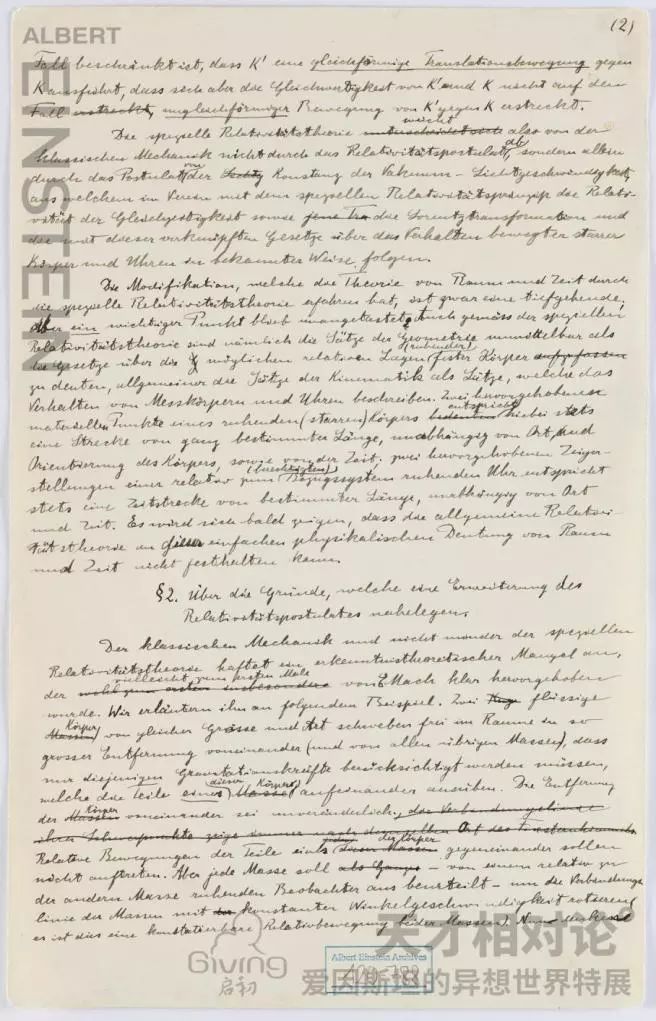 (2)
ALBERT
EINSTEIN
Fall beschränkt ist, dass K' eine gleichförmige Translationsbewegung gegen
K ausführt, dass sich aber die Gleichwertigkeit von K' und K nicht auf den
Fall erstreckt, ungleichförmiger Bewegung von K' gegen K erstreckt.
Die spezielle Relativitätstheorie unterscheidet sich weicht also von der
klassischen Mechanik nicht durch das Relativitätspostulat ab, sondern allein
durch das Postulat von der Konstanz der Vakuum-Lichtgeschwindigkeit,
aus welchem im Verein mit dem speziellen Relativitätsprinzip die Relati-
vität der Gleichzeitigkeit sowie jene Tra die Lorentztransformation und
die mit dieser verknüpften Gesetze über das Verhalten bewegter starrer
Körper und Uhren in bekannter Weise folgen.
Die Modifikation, welche die Theorie von Raum und Zeit durch
die spezielle Relativitätstheorie erfahren hat, ist zwar eine tiefgehende;
aber ein wichtiger Punkt blieb unangetastet. Auch gemäss der speziellen
Relativitätstheorie sind nämlich die Sätze der Geometrie unmittelbar als
die Gesetze über die möglichen relativen Lagen (ruhender) fester Körper aufzufassen
zu deuten, allgemeiner die Sätze der Kinematik als Sätze, welche das
Verhalten von Messkörpern und Uhren beschreiben. Zwei hervorgehobenen
materiellen Punkte eines ruhenden (starren) Körpers bedeuten entspricht hiebei stets
eine Strecke von ganz bestimmter Länge, unabhängig von Ort und
Orientierung des Körpers, sowie von der Zeit. Zwei hervorgehobenen Zeiger-
stellungen einer relativ zum (berechtigten) Bezugssystem ruhenden Uhr entspricht
stets eine Zeitstrecke von bestimmter Länge, unabhängig von Ort
und Zeit. Es wird sich bald zeigen, dass die allgemeine Relativi-
tätstheorie an dieser einfachen physikalischen Deutung von Raum
und Zeit nicht festhalten kann.
§2. Über die Gründe, welche eine Erweiterung des
Relativitätspostulates nahelegen.
Der klassischen Mechanik und nicht minder der speziellen
Relativitätstheorie haftet ein erkenntnistheoretischer Mangel an,
der wohl zum ersten insbesondere vielleicht zum ersten Male von E. Mach klar hervorgehoben
wurde. Wir erläutern ihn an folgendem Beispiel. Zwei flüssige
Massen Körper von gleicher Grösse und Art schweben frei im Raume in so
grosser Entfernung voneinander (und von allen übrigen Massen), dass
nur diejenigen Gravitationskräfte berücksichtigt werden müssen,
welche die Teile eines dieser Körper Masse aufeinander ausüben. Die Entfernung
der Massen Körper voneinander sei unveränderlich, die Verbindungslinie
ihrer Schwerpunkte zeige immer nach demselben Ort des
Relative Bewegungen der Teile eines der Körper Massen gegeneinander sollen
nicht auftreten. Aber jede Masse soll als Ganze - von einem relativ zu
der andern Masse ruhenden Beobachter aus beurteilt - um die Verbindungs-
linie der Massen mit konstanter Winkelgeschwindigkeit rotieren
es ist dies eine konstatierbare Relativbewegung beider Massen). Nun denken
天才相对论
Giving
启初
Albert Einstein Archives
120-788
爱因斯坦的异想世界特展